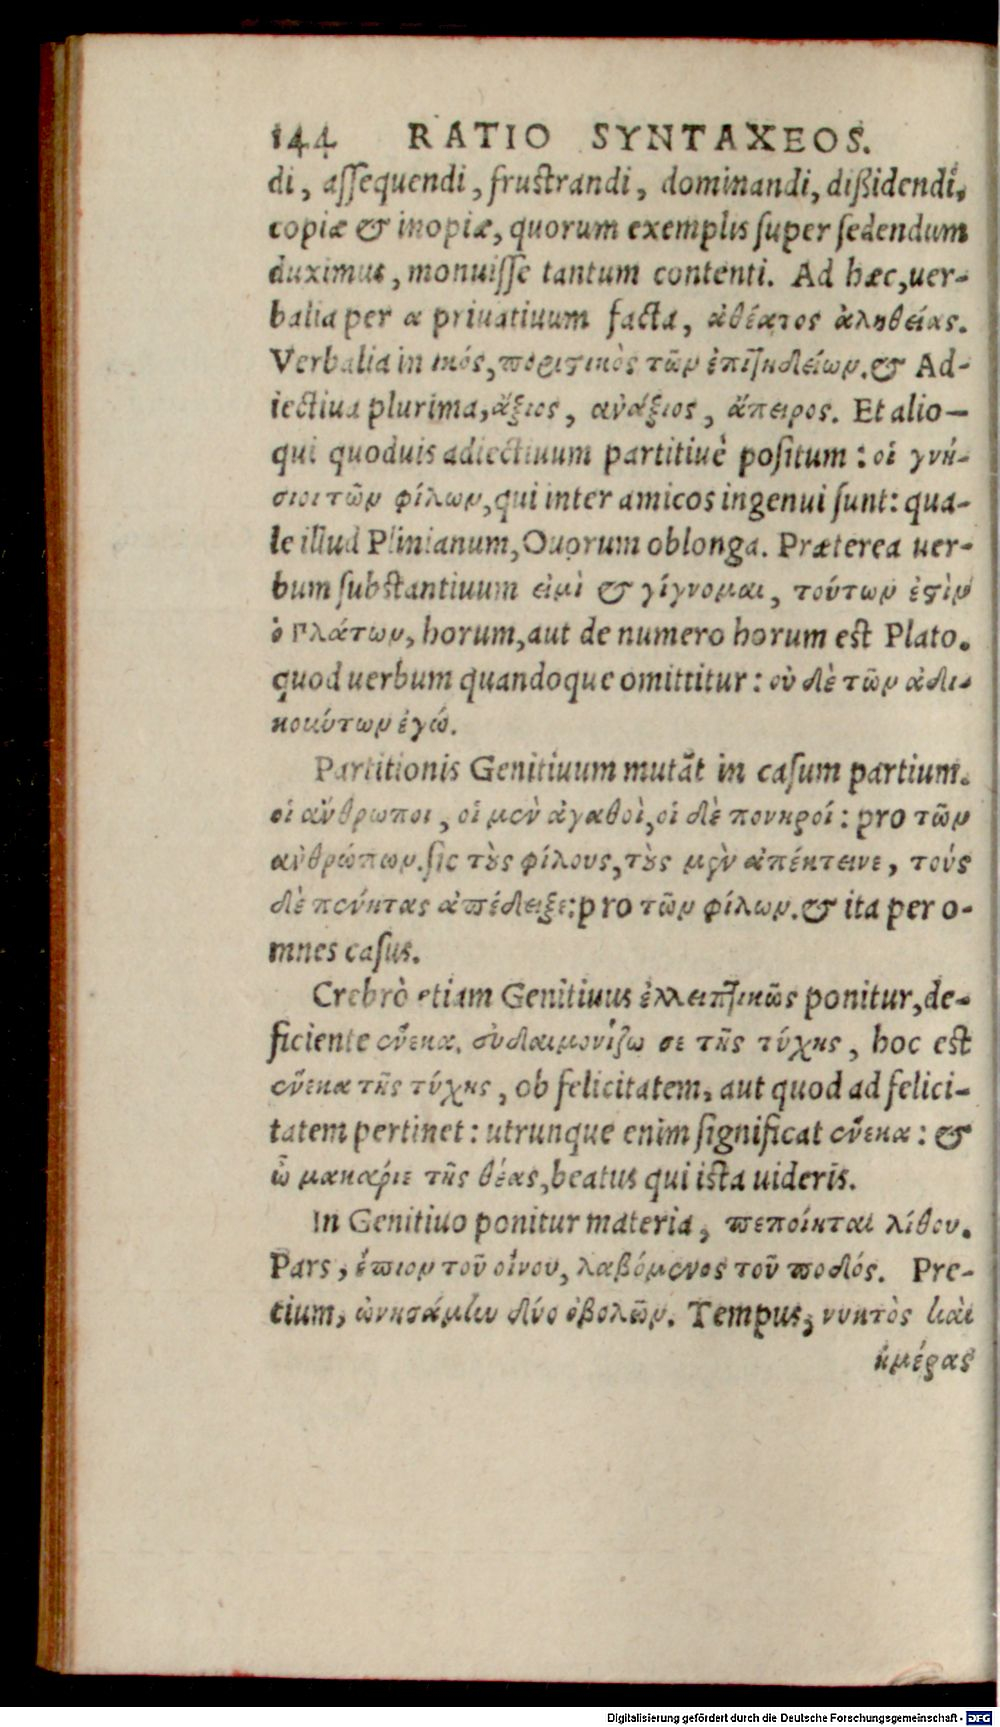 144 RATIO SYNTAXEOS.
di, assequendi, frustrandi, dominandi, dißidendi,
copiæ & inopiæ, quorum exemplis super sedendum
duximus, monuisse tantum contenti. Ad hæc, uer-
balia per α priuatiuum facta, ἀθέατος ἀληθείας.
Verbalia in ικός, ποριστικὸς τῶν ἐπιτηδείων. & Ad-
iectiua plurima, ἄξιος, ανάξιος, ἄπειρος. Et alio-
qui quoduis adiectiuum partitiuè positum: οἱ γνή-
σιοι τῶν φίλων, qui inter amicos ingenui sunt: qua-
le illud Plinianum, Ouorum oblonga. Præterea uer-
bum substantiuum εἰμὶ & γίγνομαι, τούτων ἐστὶν
ὁ Πλάτων, horum, aut de numero horum est Plato.
quod uerbum quandoque omittitur: οὐ δὲ τῶν ἀδι-
κούντων ἐγώ.
Partitionis Genitiuum mutāt in casum partium.
οἱ ἄνθρωποι, οἱ μὲν ἀγαθοὶ, οἱ δὲ πονηροί: pro τῶν
ανθρώπων. sic τοὺς φίλους, τοὺς μὲν ἀπέκτεινε, τούς
δὲ πένητας ἀπέδειξε: pro τῶν φίλων. & ita per o-
mnes casus.
Crebrò etiam Genitiuus ἐλλειπτικῶς ponitur, de-
ficiente ἕνεκα. εὐδαιμονίζω σε τῆς τύχης, hoc est
ἕνεκα τῆς τύχης, ob felicitatem, aut quod ad felici-
tatem pertinet: utrunque enim significat ἕνεκα: &
ὦ μακάριε τῆς θέας, beatus qui ista uideris.
In Genitiuo ponitur materia, πεποίηται λίθου.
Pars, ἔπιον τοῦ οἴνου, λαβόμενος τοῦ ποδός. Pre-
tium, ὠνησάμην δύο ὀβολῶν. Tempus, νυκτὸς καὶ
ἡμέρας
Digitalisierung gefördert durch die Deutsche Forschungsgemeinschaft - DFG